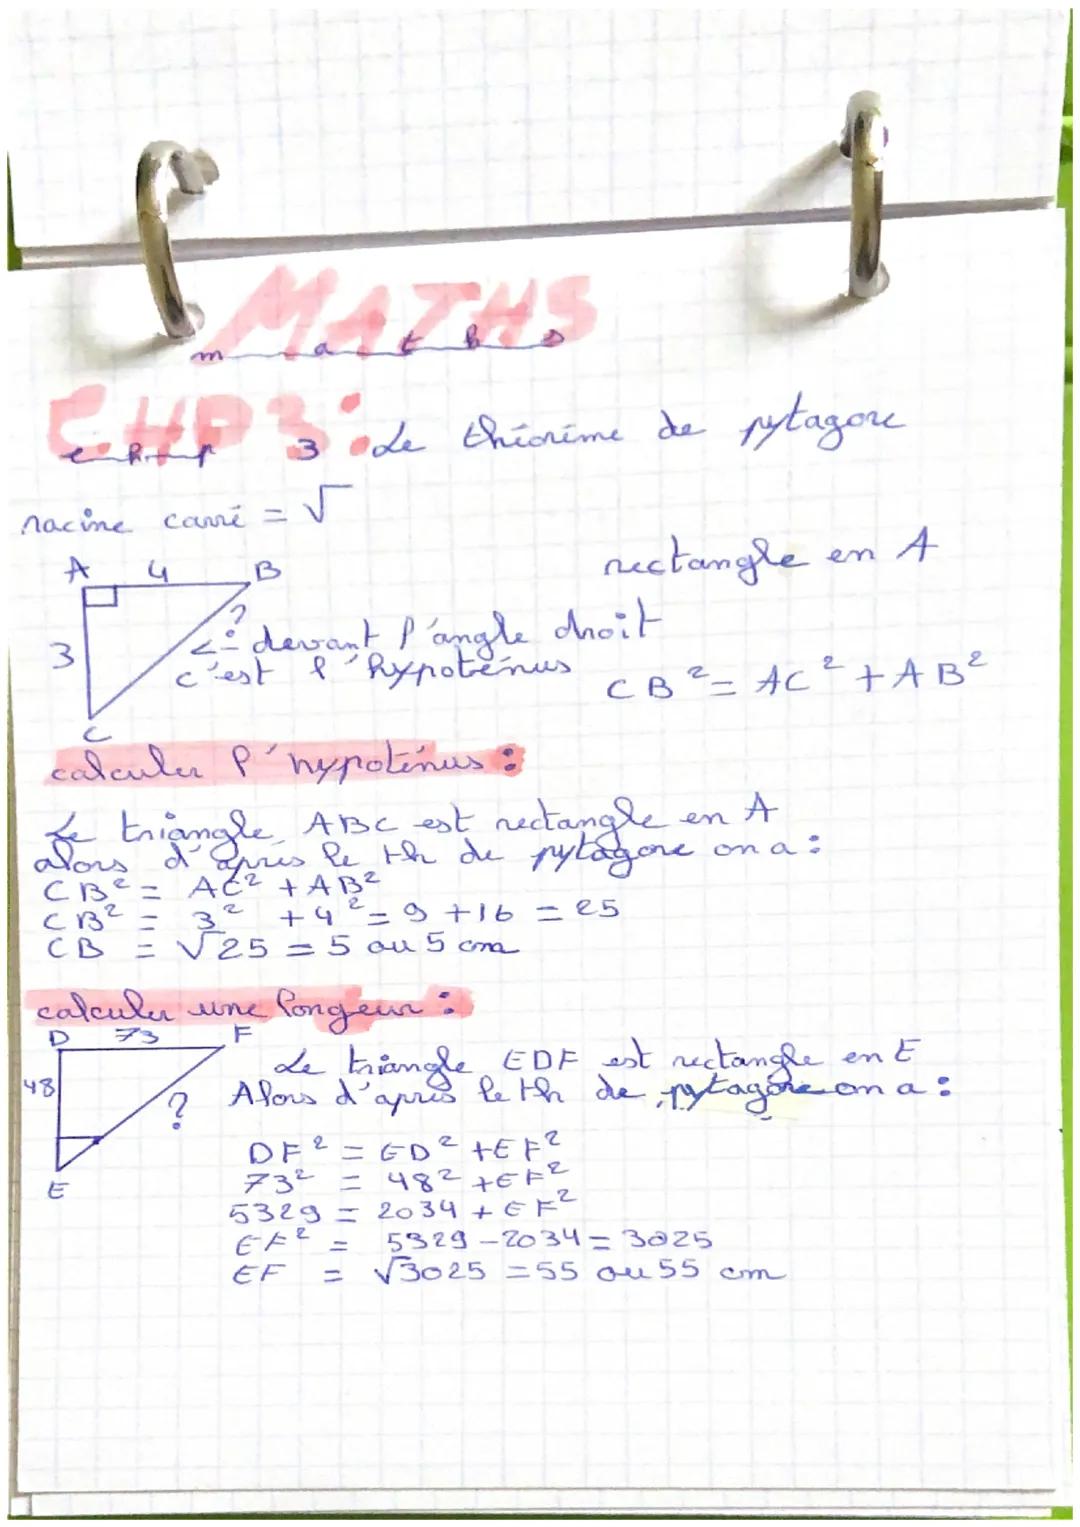 MATHS
maths
CHP 3 :
chp 3 Le théorème de pytagore
racine carré = √
A 4 B
rectangle en A
3
?
<- devant l'angle droit
c'est l'hypoténus
CB² = AC² + AB²
C
calculer l'hypoténus :
Le triangle ABC est rectangle en A
alors d'après le th de pytagore on a :
CB² = AC² + AB²
CB² = 3² + 4² = 9 + 16 = 25
CB = √25 = 5 ou 5 cm
calculer une longeur :
D 73 F
Le triangle EDF est rectangle en E
48
?
Alors d'après le th de pytagore on a :
DF² = ED² + EF²
73² = 48² + EF²
E
5329 = 2034 + EF²
EF² = 5329 - 2034 = 3025
EF = √3025 = 55 ou 55 cm